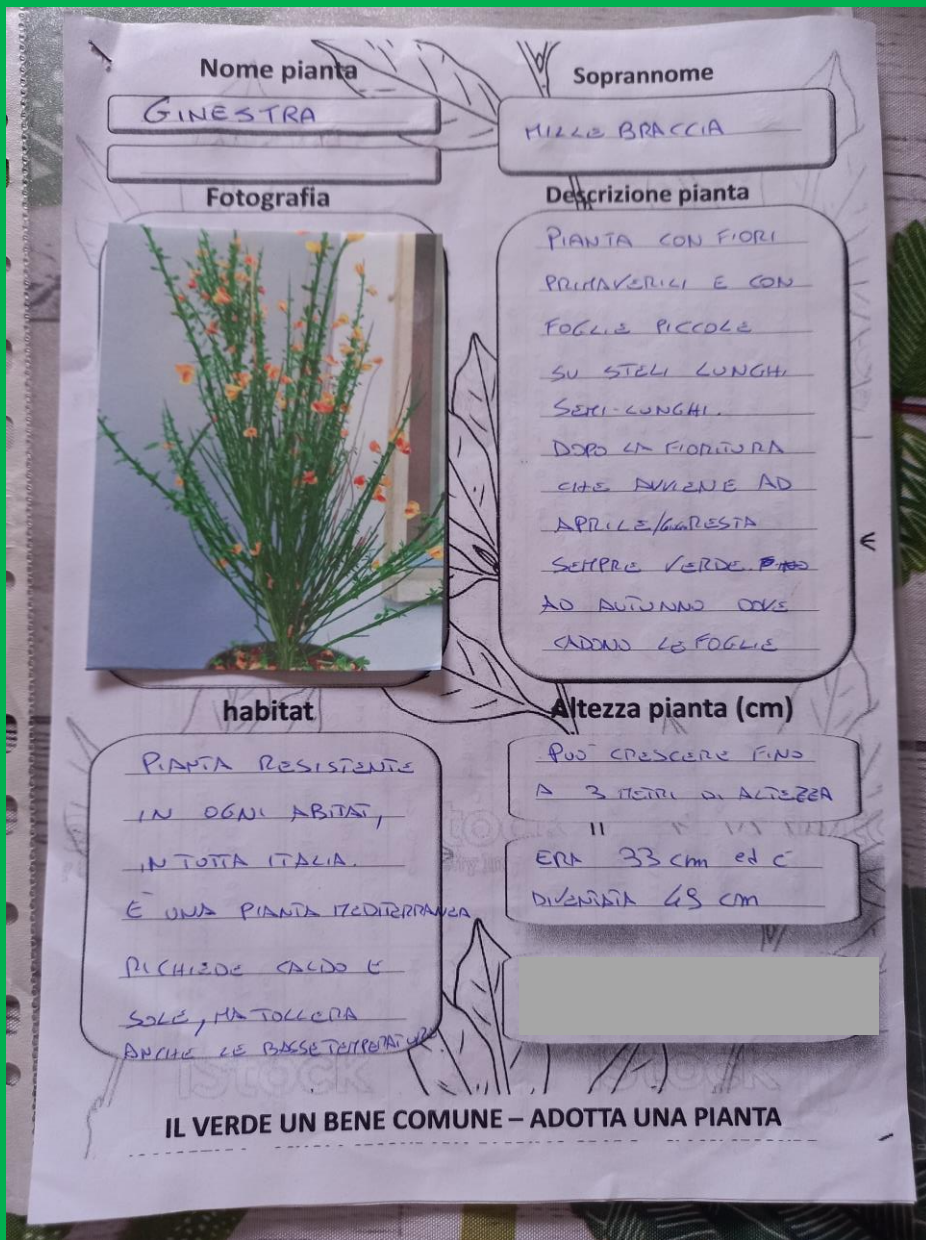 Nome pianta
GINESTRA
Soprannome
MILLE BRACCIA
Fotografia
Descrizione pianta
PIANTA CON FIORI
PRIMAVERILI E CON
FOGLIE PICCOLE
SU STELI LUNGHI
SEMI-LUNGHI.
DOPO LA FIORITURA
CHE AVVIENE AD
APRILE/ RESTA
SEMPRE VERDE
AD AUTUNNO DOVE
CADONO LE FOGLIE
habitat
PIANTA RESISTENTE
IN OGNI ABITAT,
IN TUTTA ITALIA.
È UNA PIANTA MEDITERRANEA
RICHIEDE CALDO E
SOLE, MA TOLLERA
ANCHE LE BASSE TEMPERATURE
Altezza pianta (cm)
PUÒ CRESCERE FINO
A 3 METRI DI ALTEZZA
ERA 33 cm ed è
DIVENTATA 49 cm
iStock
iStock
IL VERDE UN BENE COMUNE – ADOTTA UNA PIANTA